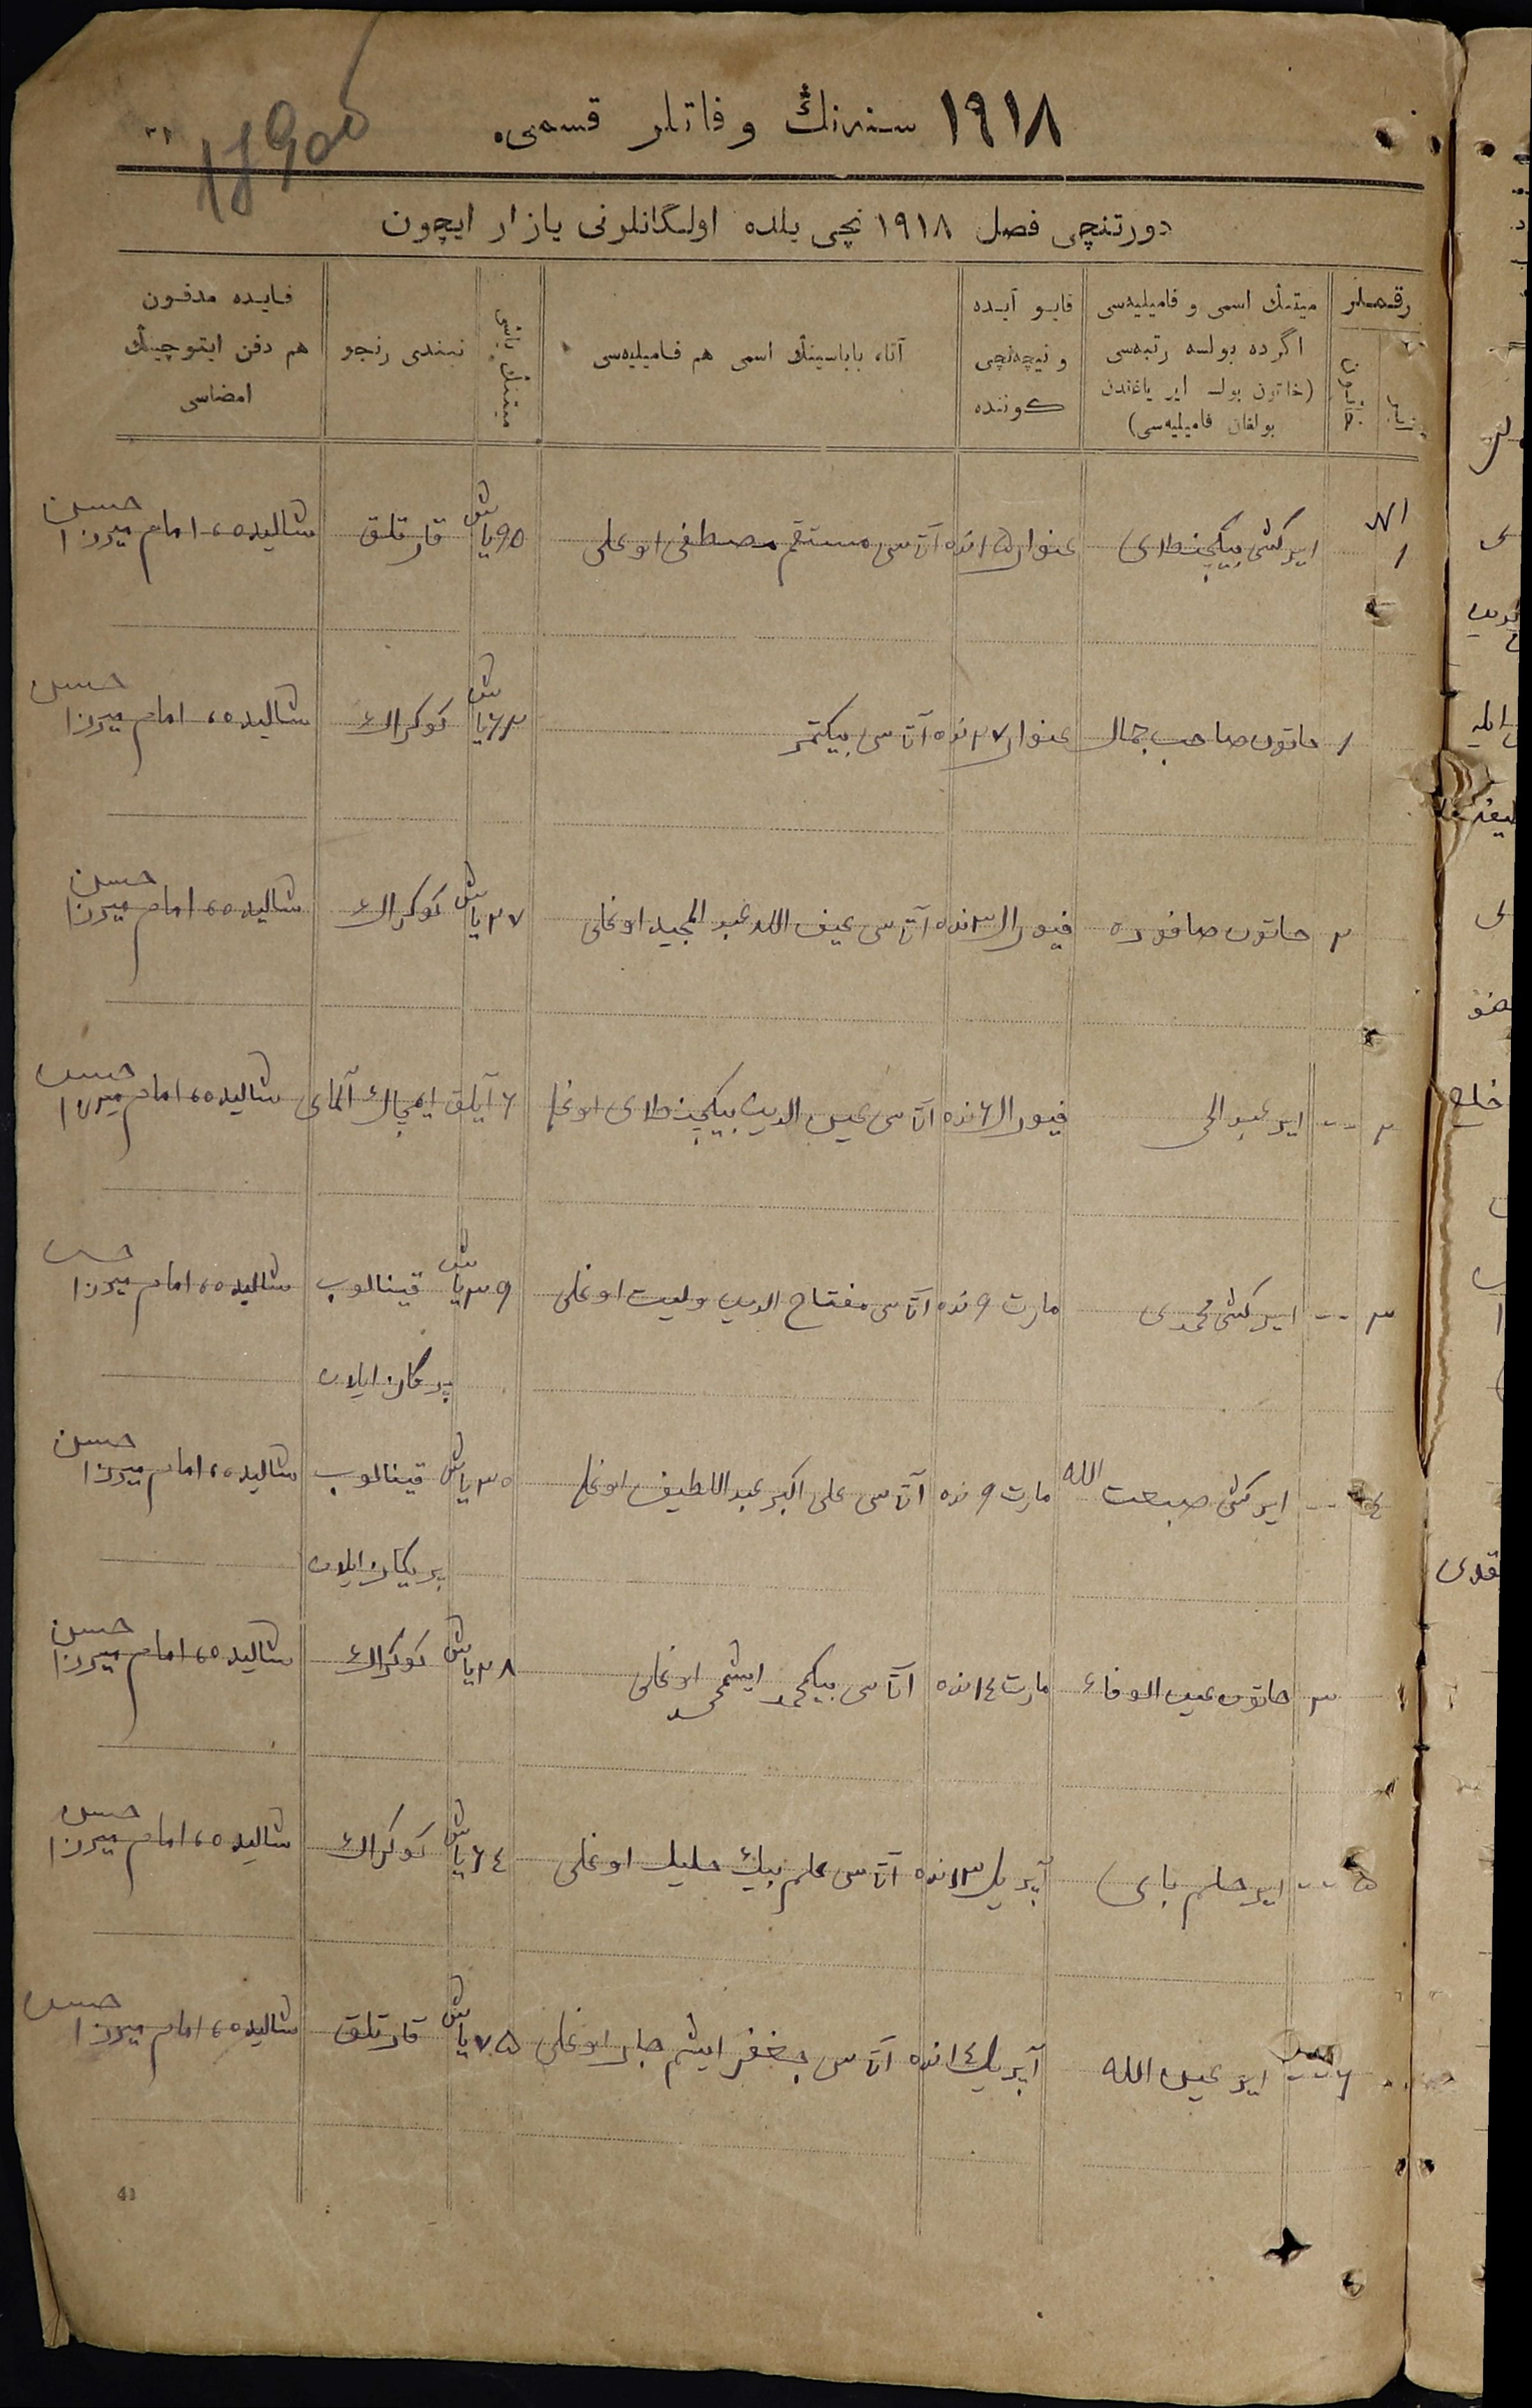 ١٩١٨ سنه‌ننڭ وفاتلر قسمی.
دورتنچی فصل ١٩١٨ نچی یلده اولگانلرنی یازار ایچون
رقملر
میتنڭ اسمی و فامیلیه‌سی اگرده بولسه رتبه‌سی (خاتون بولسه ایر یاغندن بولغان فامیلیه‌سی)
قایو آیده و نیچه‌نچی کوننده
آتا، باباسینڭ اسمی هم فامیلیه‌سی
میتنڭ یاشی
نیندی رنجو
قایده مدفون هم دفن ایتوچینڭ امضاسی
١ ایر کشی عنوار ١٥ نده آتاسی مستقیم مصطفی اوغلی ٩٥ یاش قارتلق شالیده امام میرزا حسن
١ خاتون صاحب جمال عنوار ٢٧ نده آتاسی بیکتمر ٦٢ یاش کوکراك شالیده امام میرزا حسن
٢ خاتون صافوره فیورال ٣ نده آتاسی عبد المجید اوغلی ٢٧ یاش کوکراك شالیده امام میرزا حسن
٢ ایر عبد الحی فیورال ٦ نده آتاسی عین الدین اوغلی ٦ آیلق ایمچاك آلمای شالیده امام میرزا حسن
٣ ایر کشی محمدی مارت ٩ نده آتاسی مفتاح الدین ولیت اوغلی ٣٩ یاش قینالوب شالیده امام میرزا حسن
٤ ایر کشی صبعت الله مارت ٩ نده آتاسی علی اکبر عبد اللطیف اوغلی ٣٥ یاش قینالوب شالیده امام میرزا حسن
٣ خاتون عین الوفاء مارت ١٤ نده آتاسی بیکمحمد ایشمحمد اوغلی ٢٨ یاش کوکراك شالیده امام میرزا حسن
٥ ایر حلم بای آپریل ١٣ نده آتاسی علم بیك خلیل اوغلی ٦٤ یاش کوکراك شالیده امام میرزا حسن
٦ ایر عین الله آپریل ١٤ نده آتاسی جعفر ایشم جار اوغلی ٧٥ یاش قارتلق شالیده امام میرزا حسن
41